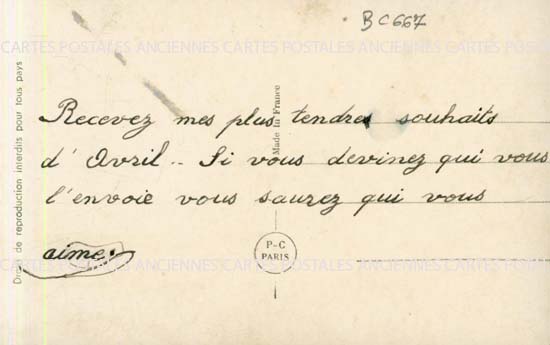 BC667
CARTES POSTALES ANCIENNES CARTES POSTALES ANCIENNES CARTES POSTALES ANCIENNES
Recevez mes plus tendres souhaits
d'Avril.. Si vous devinez qui vous
l'envoie vous saurez qui vous
aime.
CARTES POSTALES ANCIENNES CARTES POSTALES ANCIENNES CARTES POSTALES ANCIENNES
Made in France
P-C
PARIS
Droits de reproduction interdits pour tous pays